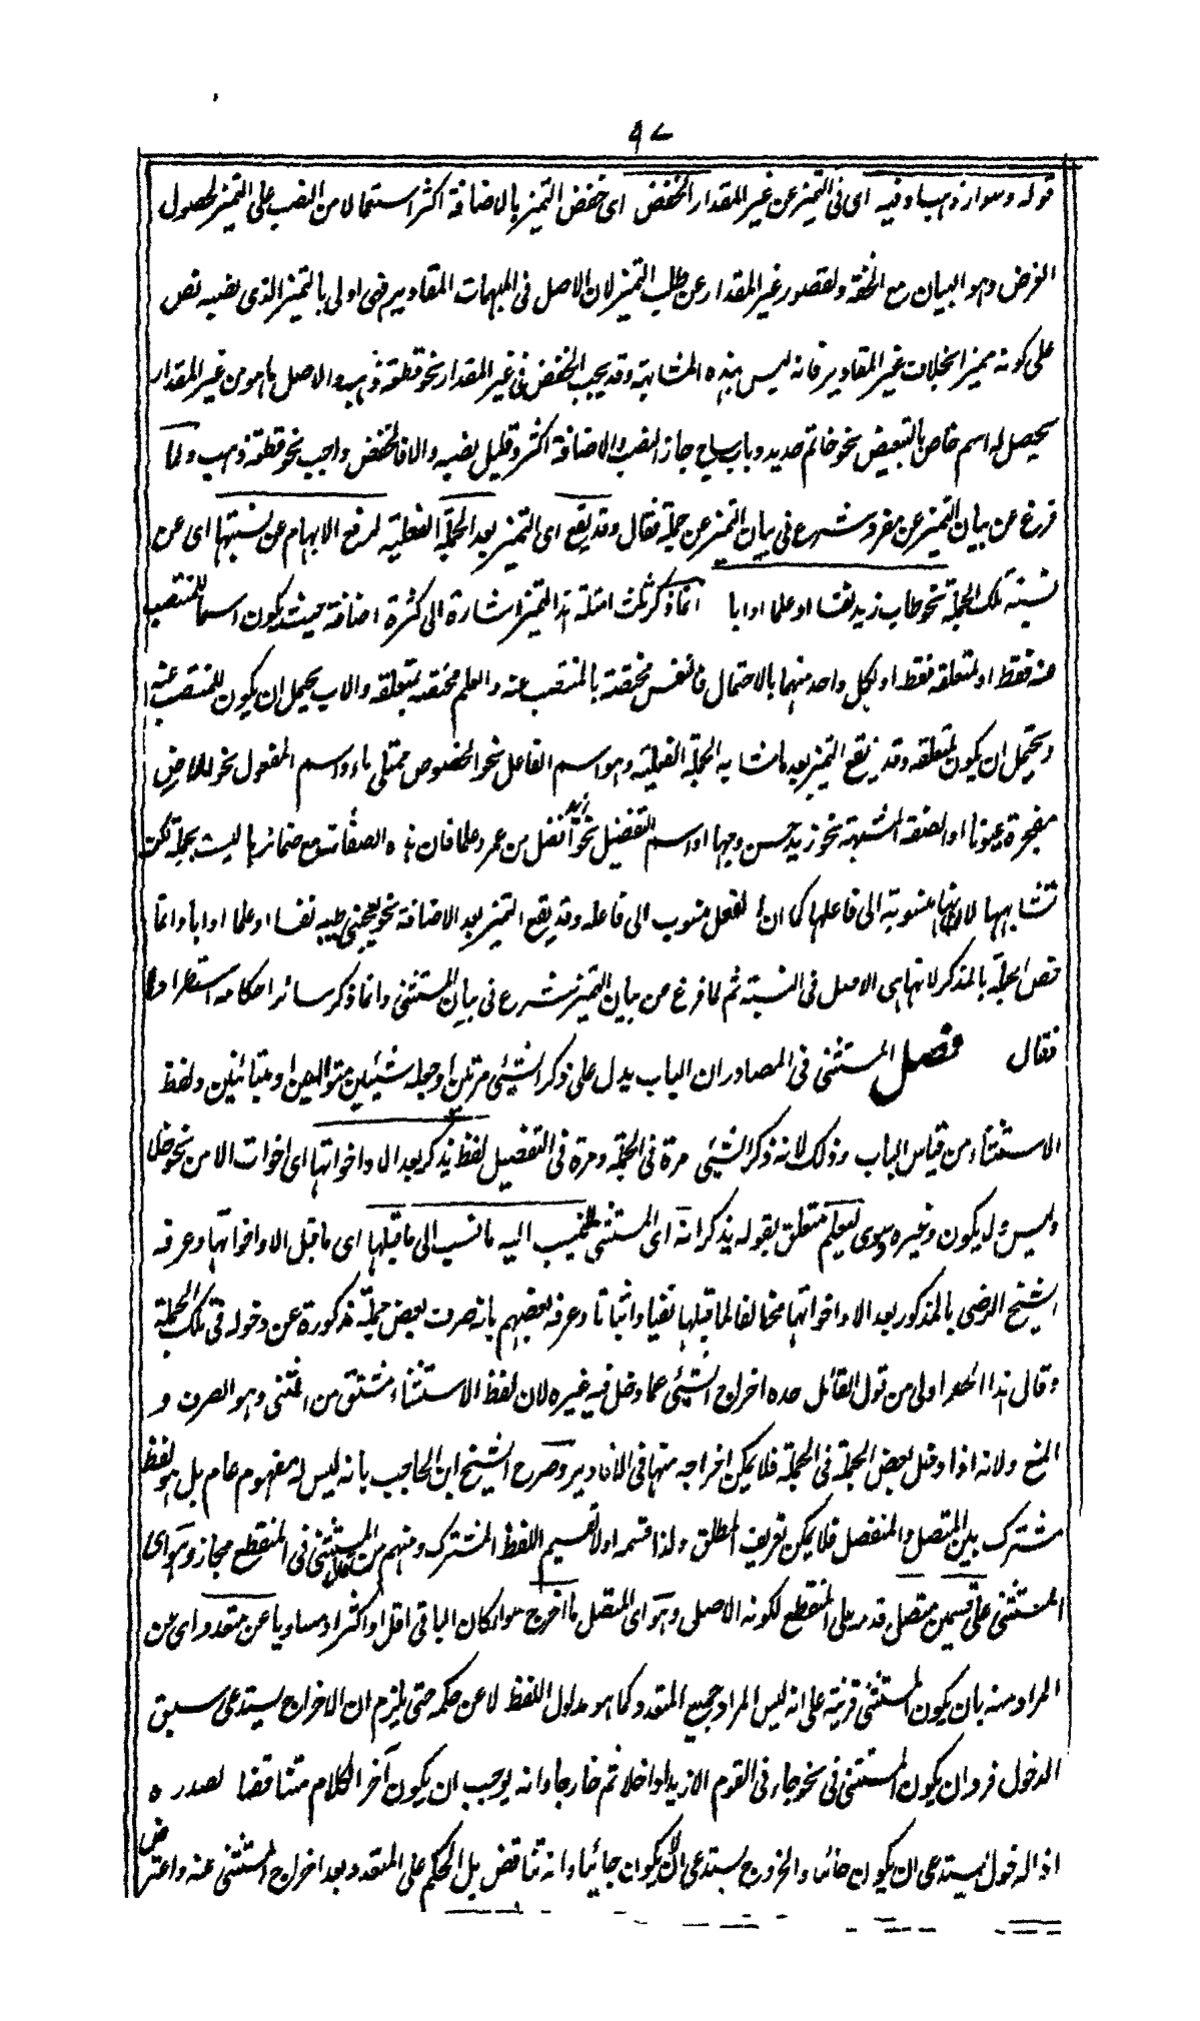 ٩٧
قوله وسوار ذهبا وفيه اى فى التميز عن غير المقدار الخفض اى خفض التميز بالاضافة اكثر استعمالا من النصب على التميز لحصول
الغرض وهو البيان مع الخفة ولقصور غير المقدار عن طلب التميز لان الاصل فى المبهمات المقادير فهى اولى بالتميز الذى نصبه نص
على كونه مميزا بخلاف غير المقادير فانه ليس بهذه المثابة وقد يجب الخفض فى غير المقدار نحو قطعة ذهب والاصل ما هو من غير المقدار
يحصل له اسم خاص بالتبعيض نحو خاتم حديد وباب ساج جاز النصب والاضافة اكثر وقليل نصبه والا فالخفض واجب نحو قطعة ذهب ولما
فرغ عن بيان التميز عن مفرد شرع فى بيان التميز عن جملة فقال وقد يقع اى التميز بعد الجملة الفعلية لرفع الابهام عن نسبتها اى عن
نسبة تلك الجملة نحو طاب زيد نفسا او علما او ابا انما ذكر ثلث امثلة هذا التميز اشارة الى كثرة اضافة حيث يكون اسما للمنتصب
عنه فقط او لمتعلقه فقط او لكل واحد منهما بالاحتمال فالنفس مختصة بالمنتصب عنه والعلم مختصة بمتعلقه والاب يحمل ان يكون للمنتصب عنه
ويحتمل ان يكون لمتعلقه وقد يقع التميز بعد ما شابه الجملة الفعلية وهو اسم الفاعل نحو الحضوص ممتلى ماء واسم المفعول نحو الارض
مفجرة عيونا او الصفة المشبهة نحو زيد حسن وجها او اسم التفضيل نحو زيد افضل من عمرو علما فان هذه الصفات مع ضمائرها ليست بجملة لكنه
تشابهها لانها منسوبة الى فاعلها كما ان الفعل منسوب الى فاعله وقد يقع التميز بعد الاضافة نحو يعجبنى طيبه نفسا او علما او ابا وانما
خص الجملة بالمذكر لانها هى الاصل فى النسبة ثم لما فرغ من بيان التميز شرع فى بيان المستثنى وانما ذكر سائر احكامه استطرادا
فقال فصل المستثنى فى المصادر ان الباب يدل على ذكر الشيئى مرتين او جعله شيئين متواليين او متبائنين ولفظ
الاستثناء من قياس الباب وذلك لانه ذكر الشيئى مرة فى الجملة ومرة فى التفصيل لفظ يذكر بعد الا واخواتها اى اخوات الا من نحو خلا
وليس ولا يكون وغيره وسوى ليعلم متعلق بقوله يذكر انه اى المستثنى لم ينسب اليه ما نسب الى ما قبلها اى ما قبل الا واخواتها وعرفه
الشيخ الرضى بالمذكور بعد الا واخواتها مخالفا لما قبلها نفيا واثباتا وعرفه بعضهم بانه صرف بعض جملة مذكورة عن دخوله فى تلك الجملة
وقال هذا الحد اولى من قول القائل حده اخراج الشيئى عما دخل فيه غيره لان لفظ الاستثناء مشتق من الثنى وهو الصرف و
المنع ولانه اذا دخل بعض الجملة فى الجملة فلا يمكن اخراجه منها فى الاقادير وصرح الشيخ ابن الحاجب بانه ليس له مفهوم عام بل هو لفظ
مشترك بين المتصل والمنفصل فلا يمكن تعريف المطلق ولذا قسمه اولا تقسيم اللفظ المشترك ومنهم من قال المستثنى فى المنقطع مجاز وهو اى
المستثنى على قسمين متصل قدمه على المنقطع لكونه الاصلى وهو اى المتصل ما اخرج سواء كان الباقى اقل او اكثر او مساويا عن متعدد اى عن
المراد منه بان يكون المستثنى قرينة على انه ليس المراد جميع المتعدد كما هو مدلول اللفظ لا عن حكمه حتى يلزم ان الاخراج يستدعى سبق
الدخول فرد ان يكون المستثنى فى نحو جاءنى القوم الا زيدا داخلا ثم خارجا وانه يوجب ان يكون آخر الكلام متناقضا لصدره
اذ الدخول يستدعى ان يكون جائيا والخروج يستدعى ان لا يكون جائيا وانه تناقض بل الحكم على المتعدد بعد اخراج المستثنى عنه واعترض